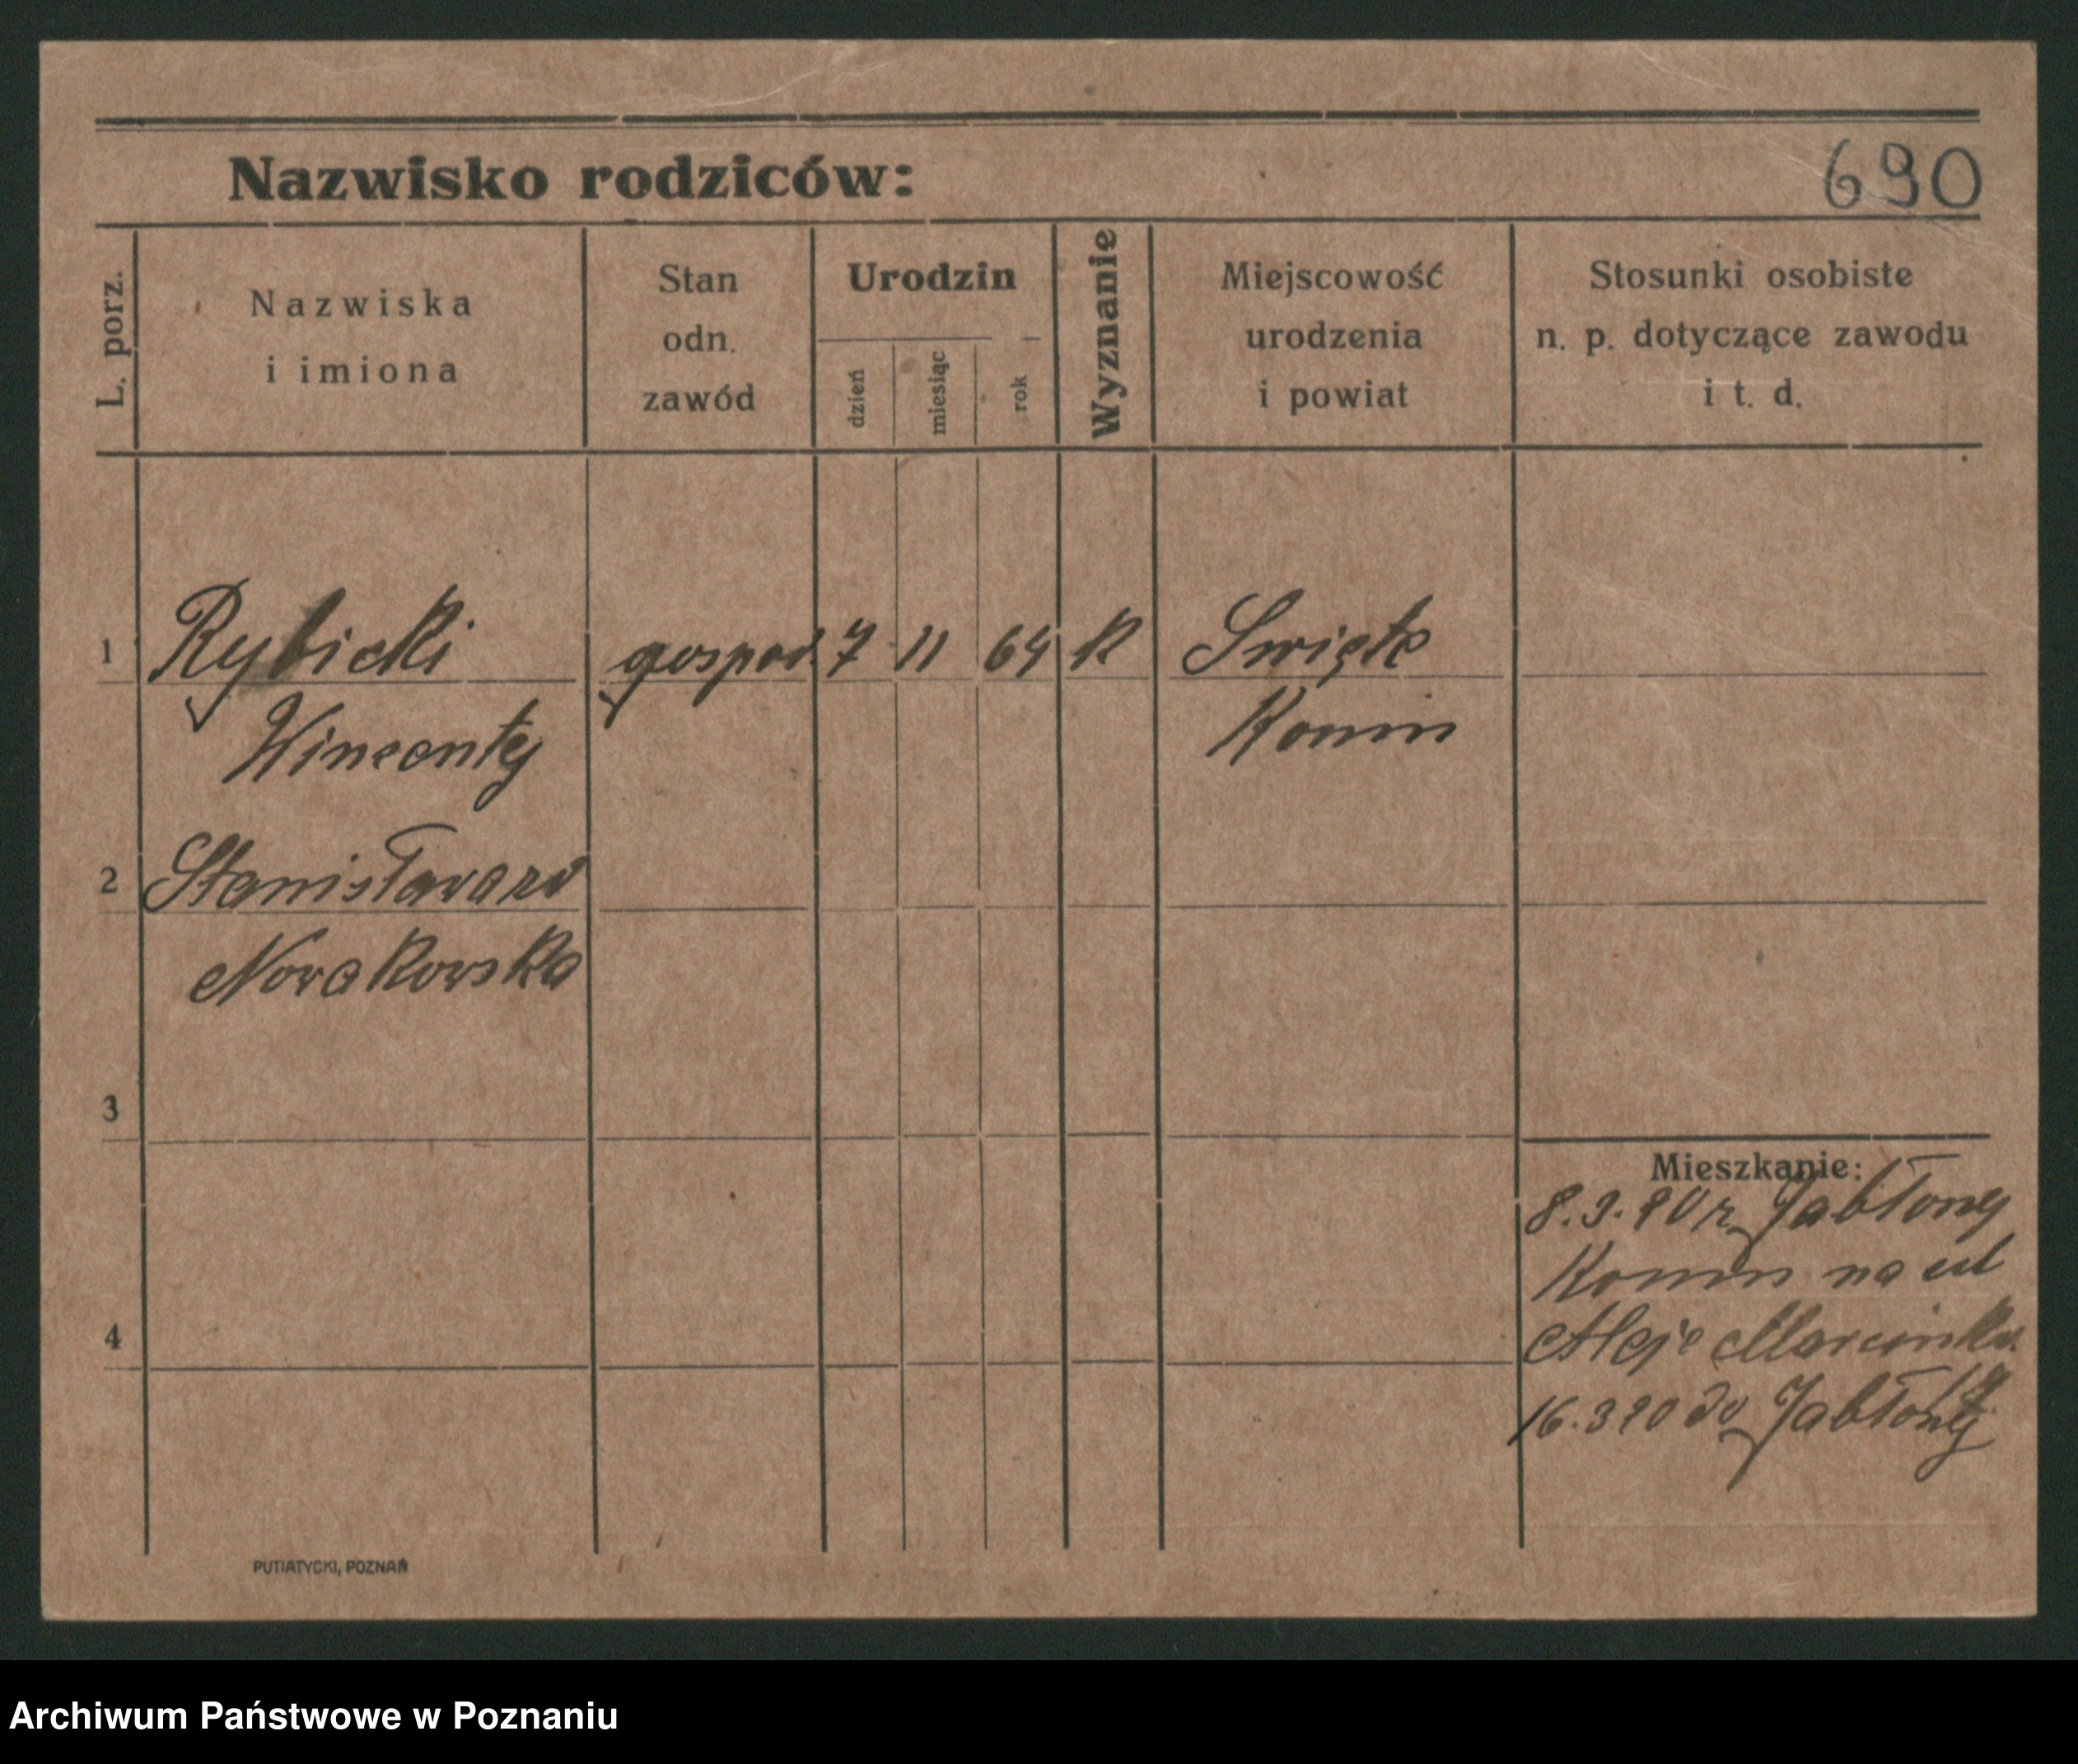 Nazwisko rodziców:
690
L. porz.
Nazwiska
i imiona
Stan
odn.
zawód
Urodzin
dzień
miesiąc
rok
Wyznanie
Miejscowość
urodzenia
i powiat
Stosunki osobiste
n. p. dotyczące zawodu
i t. d.
1 Rybicki gospod. 7 11 64 K Święte
Wincenty Konin
2 Stanisława zd
Nowakowska
3
Mieszkanie:
8.3.20 r Jabłony
Konin na ul
4 Aleje Marcinkw.
16.3 20 do Jabłony
PUTIATYCKI, POZNAŃ
Archiwum Państwowe w Poznaniu